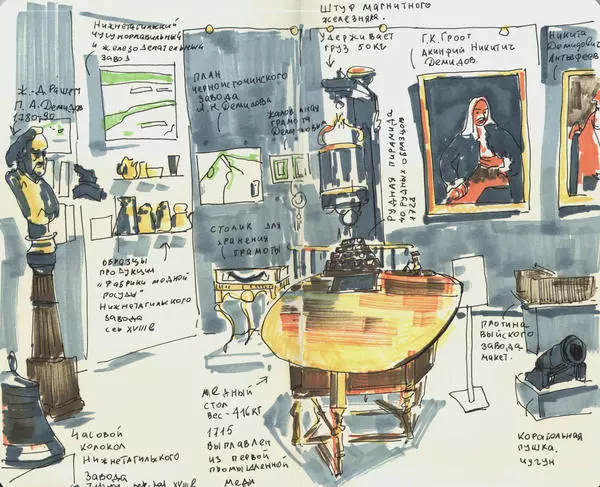 Нижнетагильский
чугуноплавильный
и железоделательный
завод
Ж.-Д. Рашет
П. А. Демидов
план
черноисточинского
завода
А. Н. Демидова
жалованная
грамота
Демидовых
штуф магнитного
железняка.
Удерживает
груз 50 кг
Г. К. Гроот
Акинфий Никитич
Демидов.
Никита
Демидович
Антуфеев
рудная пирамида
40 рудных образцов
1728
столик для
хранения
грамоты
образцы
продукции
"Фабрики медной
посуды"
Нижнетагильского
завода
сер XVIII в
медный
стол
вес - 416 кг
1715
выплавлен
из первой
промышленной
меди
плотина
Выйского
завода
макет.
корабельная
пушка.
чугун
Часовой
колокол
Нижнетагильского
завода
XVIII в